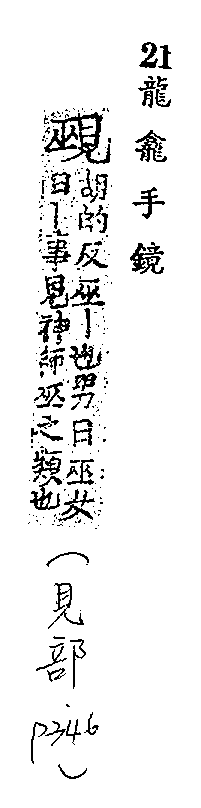 21龍龕手鏡
覡胡的反巫丨也男曰巫女
曰丨事見神師巫之類也
(見部.p346)